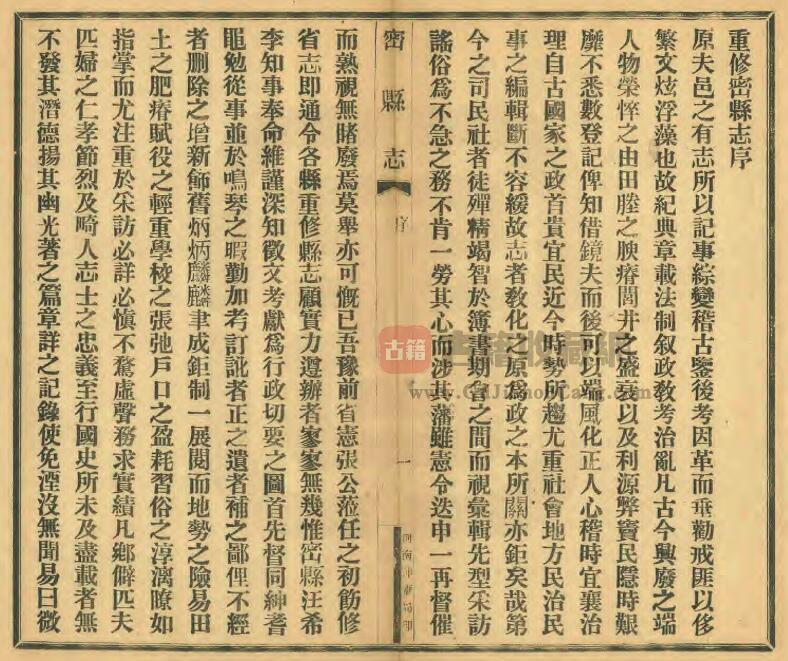 重修密縣志序
原夫邑之有志所以記事綜變稽古鑒後考因革而垂勸戒匪以侈
繁文炫浮藻也故紀典章載法制叙政敎考治亂凡古今興廢之端
人物榮悴之由田塍之腴瘠閭井之盛衰以及利源弊竇民隱時艱
靡不悉數登記俾知借鏡夫而後可以端風化正人心稽時宜襄治
理自古國家之政首貴宜民近今時勢所趨尤重社會地方民治民
事之編輯斷不容緩故志者敎化之原爲政之本所關亦鉅矣哉第
今之司民社者徒殫精竭智於簿書期會之間而視彙輯先型采訪
謠俗爲不急之務不肯一勞其心而涉其藩雖憲令迭申一再督催
密縣志
序
一
而熟視無睹廢焉莫舉亦可慨已吾豫前省憲張公蒞任之初飭修
省志即通令各縣重修縣志顧實力遵辦者寥寥無幾惟密縣汪希
李知事奉命維謹深知徵文考獻爲行政切要之圖首先督同紳耆
黽勉從事並於鳴琴之暇勤加考訂訛者正之遺者補之鄙俚不經
者删除之增新飾舊炳炳麟麟聿成鉅制一展閱而地勢之險易田
土之肥瘠賦役之輕重學校之張弛戶口之盈耗習俗之淳漓瞭如
指掌而尤注重於采訪必詳必愼不騖虛聲務求實績凡鄕僻匹夫
匹婦之仁孝節烈及畸人志士之忠義至行國史所未及盡載者無
不發其潛德揚其幽光著之篇章詳之記錄使免湮沒無聞易曰微
古籍